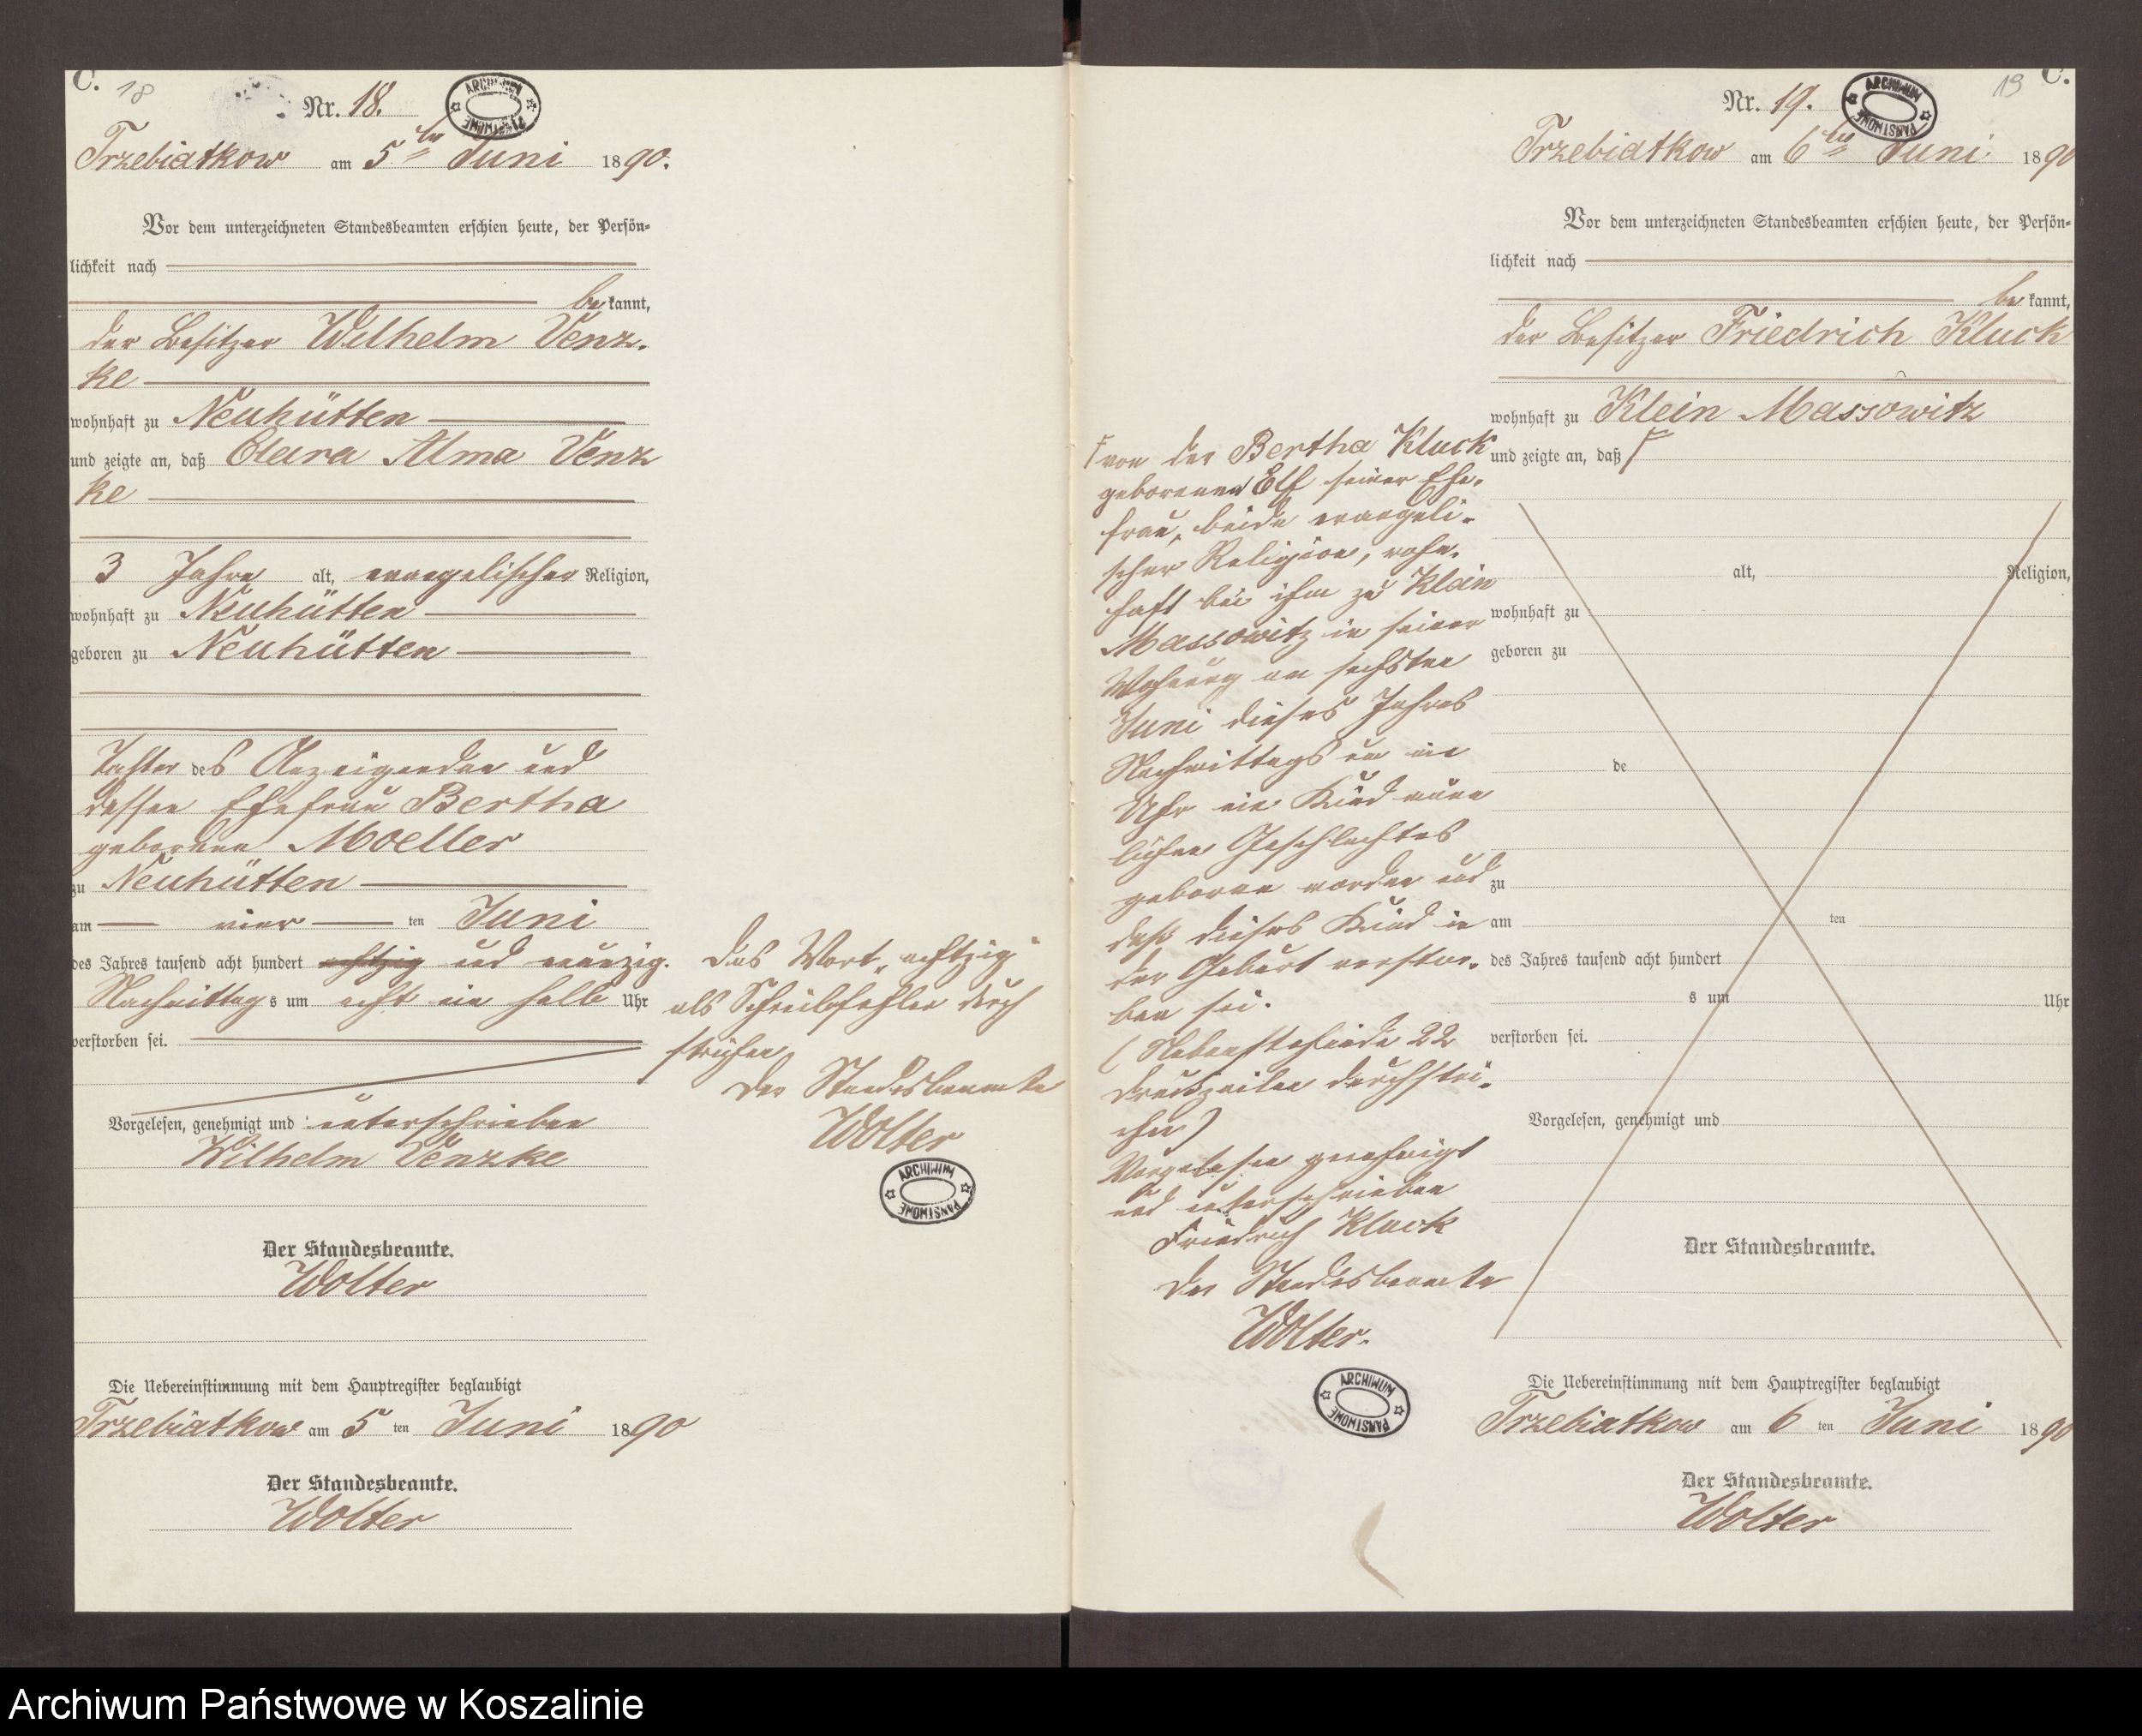 C. 18
Nr. 18.
ARCHIWUM PAŃSTWOWE
Trzebiatkow am 5ten Juni 1890.
Vor dem unterzeichneten Standesbeamten erschien heute, der Persön-
lichkeit nach
bekannt,
der Besitzer Wilhelm Venz-
ke
wohnhaft zu Neuhütten
und zeigte an, daß Clara Alma Venz
ke
3 Jahre alt, evangelischer Religion,
wohnhaft zu Neuhütten
geboren zu Neuhütten
Tochter des Anzeigenden und
dessen Ehefrau Bertha
geborenen Moeller
zu Neuhütten
am vier ten Juni
des Jahres tausend acht hundert achtzig und neunzig.
Nachmittags um acht ein halb Uhr
verstorben sei.
Vorgelesen, genehmigt und unterschrieben
Wilhelm Venzke
Der Standesbeamte.
Wolter
Die Uebereinstimmung mit dem Hauptregister beglaubigt
Trzebiatkow am 5 ten Juni 1890
Der Standesbeamte.
Wolter
Das Wort „achtzig“
als Schreibfehler durch
strichen
Der Standesbeamte
Wolter
ARCHIWUM PAŃSTWOWE
19 C.
Nr. 19.
ARCHIWUM PAŃSTWOWE
Trzebiatkow am 6ten Juni 1890
Vor dem unterzeichneten Standesbeamten erschien heute, der Persön-
lichkeit nach
bekannt,
der Besitzer Friedrich Kluck
wohnhaft zu Klein Massowitz
und zeigte an, daß
alt, Religion,
wohnhaft zu
geboren zu
de
zu
am ten
des Jahres tausend acht hundert
s um Uhr
verstorben sei.
Vorgelesen, genehmigt und
Der Standesbeamte.
von der Bertha Kluck
geborenen Elf seiner Ehe-
frau, beide evangeli-
scher Religion, wohn-
haft bei ihm zu Klein
Massowitz in seiner
Wohnung am sechsten
Juni dieses Jahres
Nachmittags um ein
Uhr ein Kind männ
lichen Geschlechtes
geboren worden und
daß dieses Kind in
der Geburt verstor-
ben sei.
(Nebenstehende 22
Druckzeilen durchstri-
chen)
Vorgelesen genehmigt
und unterschrieben
Friedrich Kluck
Der Standesbeamte
Wolter.
ARCHIWUM PAŃSTWOWE
Die Uebereinstimmung mit dem Hauptregister beglaubigt
Trzebiatkow am 6 ten Juni 1890
Der Standesbeamte.
Wolter
Archiwum Państwowe w Koszalinie